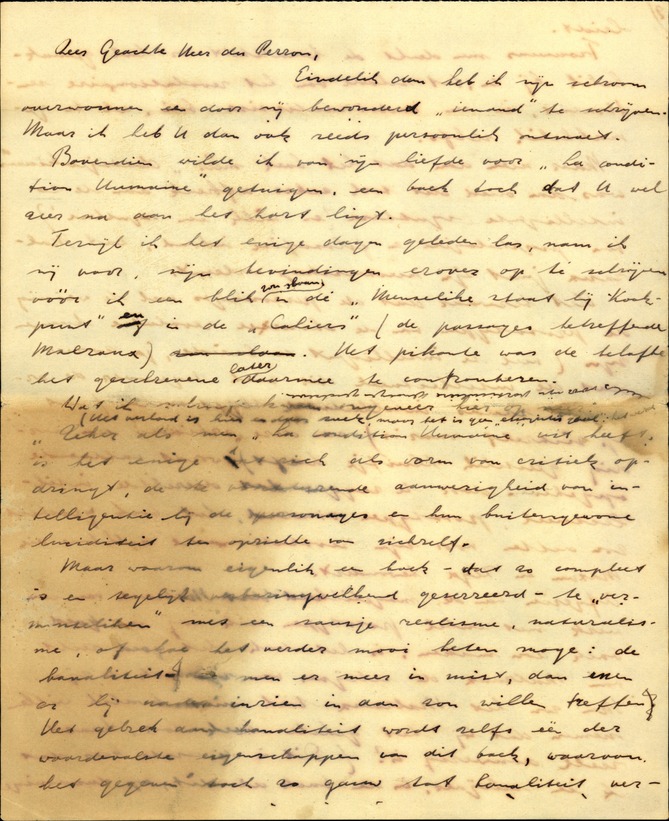 Zeer Geachte Heer du Perron,
Eindelik dan heb ik mijn schroom
overwonnen een door mij bewonderd „iemand" te schrijven.
Maar ik heb U dan ook reeds persoonlik ontmoet.
Bovendien wilde ik van mijn liefde voor „La condi-
tion Humaine" getuigen, een boek toch dat U wel
zeer na aan het hart ligt.
Terwijl ik het enige dagen geleden las, nam ik
mij voor, mijn bevindingen erover op te schrijven
vóór ik een blik zou slaan in de „Menselike staat bij Kock-
punt" en in de „Cahiers" (de passages betreffende
Malraux). Het pikante was de belofte
het geschrevene later daarmee te confronteren.
Wat ik
(Het verband is hier
„Zeker als men „La condition Humaine" uit heeft,
is het enige zich als vorm van critiek op-
dringt, de aanwezigheid van in-
telligentie bij de personages en hun buitengewone
luciditeit ten opzichte van zichzelf.
Maar waarom eigenlik een boek – dat zo compleet
is en tegelijk geserreerd – te „ver-
menseliken" met een sausje realisme, naturalis-
me, of hoe het verder mooi heten moge: de
banaliteit men er meer in mist, dan men
er bij inzien in aan zou willen treffen?
Het gebrek aan banaliteit wordt zelfs één der
waardevolste eigenschappen van dit boek, waarvan
het gegeven toch zo gauw tot banaliteit ver-